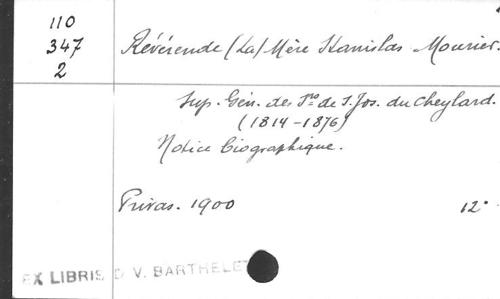 110
347
2
Révérende (La) Mère Stanislas Mourier.
Sup. Gén. des Srs de S. Jos. du Cheylard.
(1814-1876)
Notice biographique.
Privas. 1900 12°
EX LIBRIS D V. BARTHELE